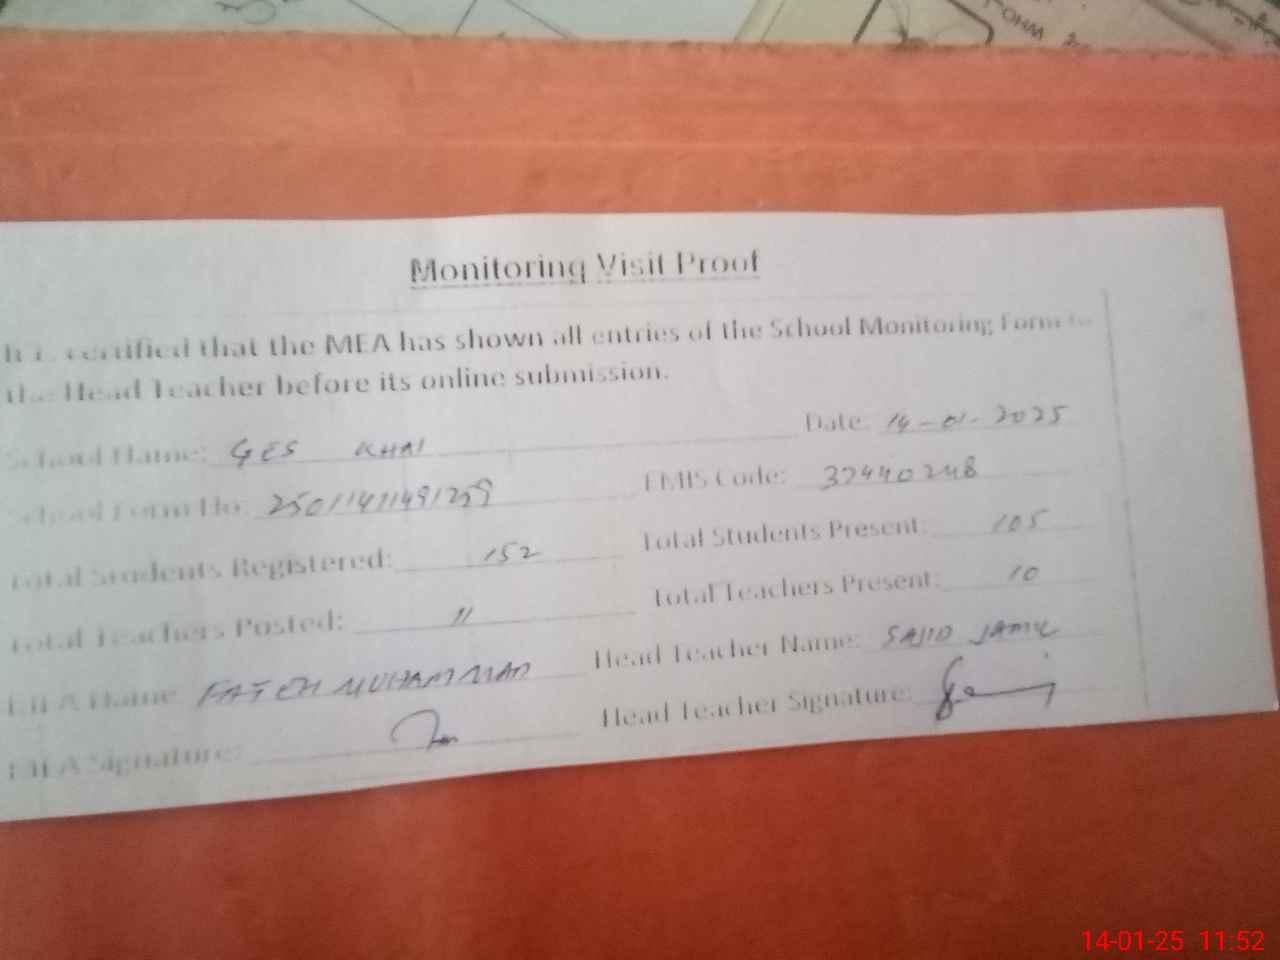 OHM
Monitoring Visit Proof
It is certified that the MEA has shown all entries of the School Monitoring Form to
the Head Teacher before its online submission.
School Name: GES KHAI Date: 14-01-2025
School Form No: EMIS Code: 37440248
Total Students Registered: 152 Total Students Present: 105
Total Teachers Posted: 11 Total Teachers Present: 10
MEA Name FATEH MUHAMMAD Head Teacher Name: SAJID JAMIL
MEA Signature: Head Teacher Signature:
14-01-25 11:52